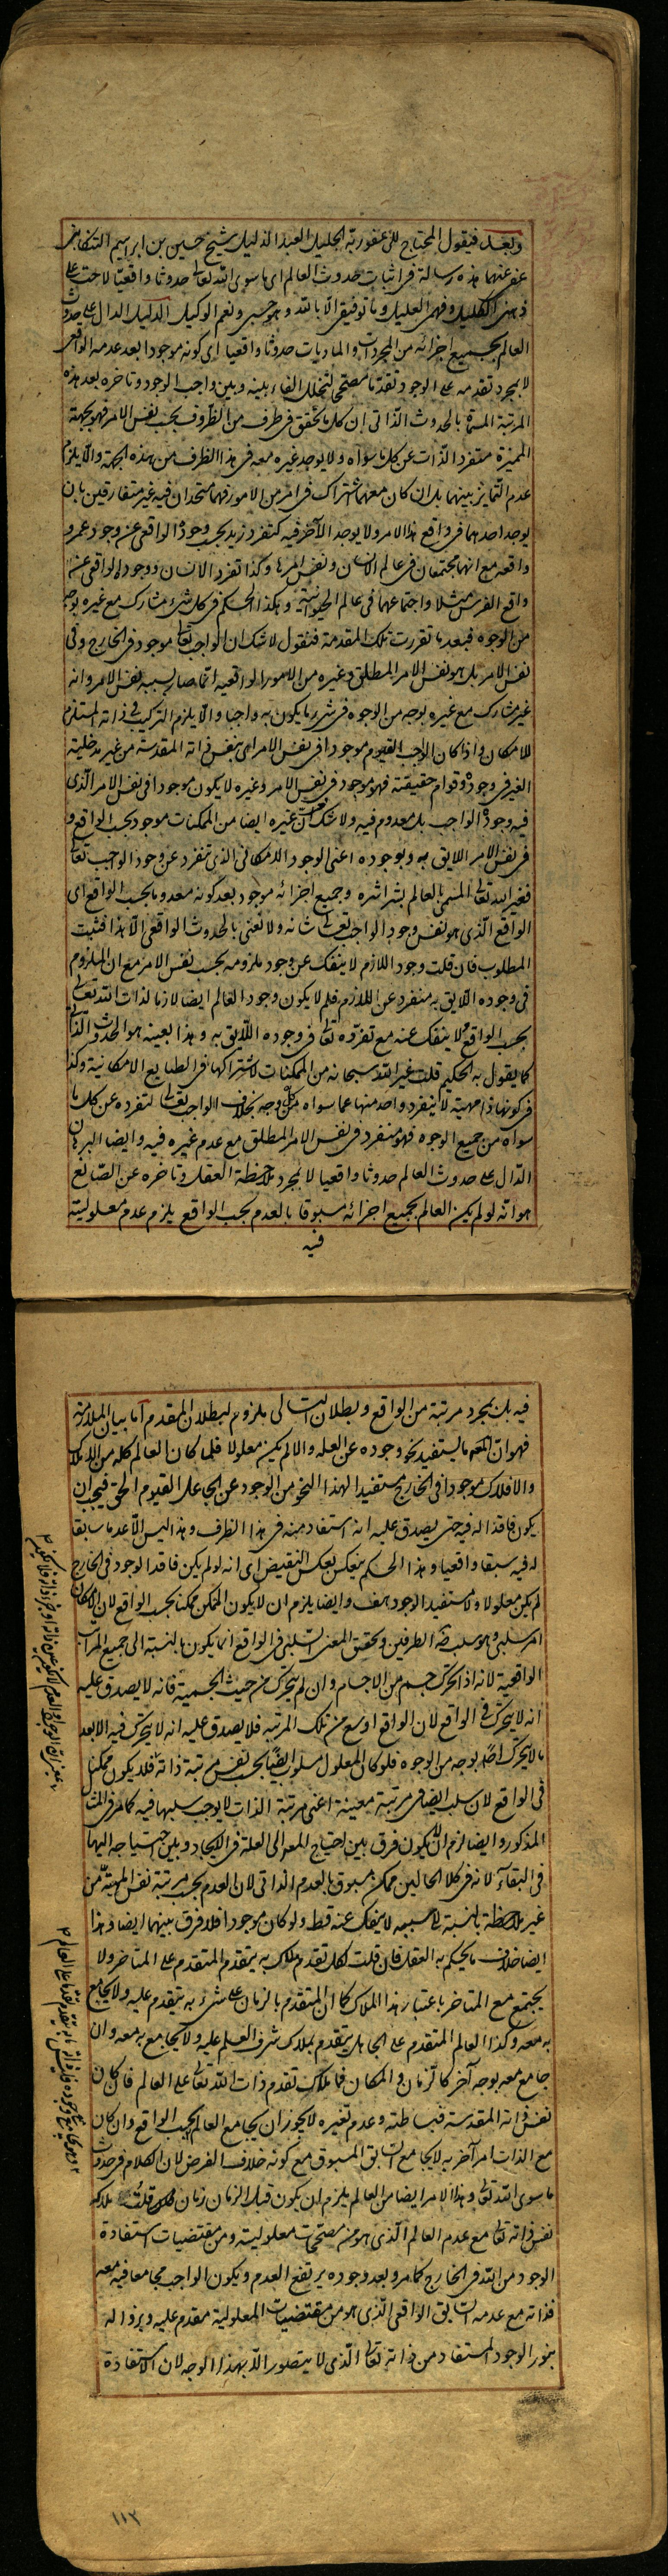 وبعد فيقول المحتاج الى عفو ربه الجليل العبد الذليل شيخ حسين بن ابراهيم التنكابنى
عفى عنهما هذه رسالة فى اثبات حدوث العالم اى ما سوى الله تعالى حدوثا واقعيا لاحت على
ذهنى الكليل وفهمى العليل وما توفيقى الا بالله وهو حسبى ونعم الوكيل الدليل الدال على حدوث
العالم بجميع اجزائه من المجردات والماديات حدوثا واقعيا اى كونه موجودا بعد عدمه الواقعى
لا بمجرد تقدمه على الوجود تقدما مصححا لتخلل الفاء بينه وبين واجب الوجود وتاخره بعد هذه
المرتبة المسماة بالحدوث الذاتى ان كل ما تحقق فى ظرف من الظروف بحسب نفس الامر فهو بجهته
المميزة متفرد الذات عن كل ما سواه ولا يوجد غيره معه فى هذا الظرف من هذه الجهة والا يلزم
عدم التمايز بينهما بل ان كان معهما اشتراك فى امر من الامور فهما متحدان فيه غير متفارقين بان
يوجد احدهما فى واقع هذا الامر ولا يوجد الآخر فيه كتفرد زيد بحسب وجوده الواقعى عن وجود عمرو
واقعه مع انهما مجتمعان فى عالم الانسان ونفس امرها وكذا تفرد الانسان ووجوده الواقعى عن
واقع الفرس مثلا واجتماعهما فى عالم الحيوانية وهكذا الحكم فى كل شىء مشارك مع غيره بوجه
من الوجوه فبعد ما تقررت تلك المقدمة فنقول لا شك ان الواجب تعالى موجود فى الخارج وفى
نفس الامر بل هو نفس الامر المطلق وغيره من الامور الواقعية انما صار بسببه نفس الامر وانه
غير مشارك مع غيره بوجه من الوجوه فى شىء ما يكون به واجبا والا يلزم التركيب فى ذاته المستلزم
للامكان واذا كان الواجب القيوم موجودا فى نفس الامر اى بنفس ذاته المقدسة من غير مدخلية
الغير فى وجوده وقوام حقيقته فهو موجود فى نفس الامر وغيره لا يكون موجودا فى نفس الامر الذى
فيه وجود الواجب بل معدوم فيه ولا شك ان غيره ايضا من الممكنات موجود بحسب الواقع و
فى نفس الامر اللايق به وبوجوده اعنى الوجود الامكانى الذى تتفرد عن وجود الواجب تعالى
فغير الله تعالى المسمى بالعالم بشراشره وجميع اجزائه موجود بعد كونه معدوما بحسب الواقع اى
الواقع الذى هو نفس وجود الواجب تعالى شانه ولا نعنى بالحدوث الواقعى الا هذا فثبت
المطلوب فان قلت وجود اللازم لا ينفك عن وجود ملزومه بحسب نفس الامر مع ان الملزوم
فى وجوده اللايق به منفرد عن اللازم فلم لا يكون وجود العالم ايضا لازما لذات الله تعالى
بحسب الواقع ولا ينفك عنه مع تفرده تعالى فى وجوده اللايق به وهذا بعينه هو الحدوث الذاتى
كما يقول به الحكيم قلت غير الله سبحانه من الممكنات لاشتراكها فى الطبايع الامكانية وكذا
فى كونها ذا مهية لا ينفرد واحد منها عما سواه من كل وجه بخلاف الواجب تعالى لتفرده عن كل ما
سواه من جميع الوجوه فهو منفرد فى نفس الامر المطلق مع عدم غيره فيه وايضا البرهان
الدال على حدوث العالم حدوثا واقعيا لا بمجرد ملاحظة العقل وتاخره عن الصانع
هو انه لو لم يكن العالم بجميع اجزائه مسبوقا بالعدم بحسب الواقع يلزم عدم معلوليته
فيه
فيه بل بمجرد مرتبة من الواقع وبطلان التالى ملزوم لبطلان المقدم اما بيان الملازمة
فهو ان المعلول ما يستفيد نحو وجوده عن العلة والا لم يكن معلولا فلما كان العالم كله من الاملاك
والافلاك موجودا فى الخارج مستفيدا لهذا النحو من الوجود عن الجاعل القيوم الحق فيجب ان
يكون فاقدا له فيه حتى يصدق عليه انه استفاد منه فى هذا الظرف وهذا ليس الا عدما سابقا
له فيه سبقا واقعيا وهذا الحكم ينعكس بعكس النقيض اى انه لو لم يكن فاقدا لوجود فى الخارج
لم يكن معلولا ولا مستفيد الوجود هف وايضا يلزم ان لا يكون الممكن ممكنا بحسب الواقع لان الامكان
امر سلبى وهو سلب ضرورة الطرفين وتحقق المعنى السلبى فى الواقع انما يكون بالنسبة الى جميع المراتب
الواقعية لانه اذا تحرك جسم من الاجسام وان لم يتحرك من حيث الجسمية فانه لا يصدق عليه
انه لا يتحرك فى الواقع لان الواقع اوسع من تلك المرتبة فلا يصدق عليه انه لا يتحرك فيه الا بعد
ما لا يتحرك اصلا بوجه من الوجوه فلو كان المعلول مسلوب بحسب نفس مرتبة ذاته فلا يكون ممكنا
فى الواقع لان سلب فى مرتبة معينة اعنى مرتبة الذات لا يوجب سلبها فيه كما مر فى المثال
المذكور وايضا لزم ان لا يكون فرق بين احتياج المعلول الى العلة فى الايجاد وبين احتياجه اليها
فى البقاء لانه فى كلا الحالين ممكن مسبوق بالعدم الذاتى لان العدم بحسب مرتبة نفس المهية من
غير ملاحظة بالنسبة الى سببه لا ينفك عنه قط ولو كان موجودا فلا فرق بينهما ايضا وهذا
ايضا خلاف ما يحكم به العقل فان قلت لكل تقدم ملاك به يتقدم المتقدم على المتاخر ولا
يجتمع مع المتاخر باعتبار هذا الملاك كما ان المتقدم بالزمان على شىء به يتقدم عليه ولا يجامع
به معه وكذا العالم المتقدم على الجاهل يتقدم بملاك شرف العلم عليه ولا يجامع به معه وان
جامع معه بوجه آخر كالزمان والمكان فما ملاك تقدم ذات الله تعالى على العالم فان كان
نفس ذاته المقدسة فبساطته وعدم تغيره لا يجوز ان يجامع العالم بحسب الواقع وان كان
مع الذات امرا آخر به لا يجامع السابق المسبوق مع كونه خلاف الفرض لان الكلام فى حدوث
ما سوى الله تعالى وهذا الامر ايضا من العالم يلزم ان يكون قبل الزمان زمان قلت ملاكه
نفس ذاته تعالى مع عدم العالم الذى هو من مصححات معلوليته ومن مقتضيات استفادة
الوجود من الله فى الخارج كما مر وبعد وجوده يرتفع العدم ويكون الواجب مجامعا فيه معه
فذاته مع عدمه السابق الواقعى الذى هو من مقتضيات المعلولية مقدم عليه وبزواله
بنور الوجود المستفاد من ذاته تعالى الذى لا يتصور الا بهذا الوجه لان الاستفادة
١١٢